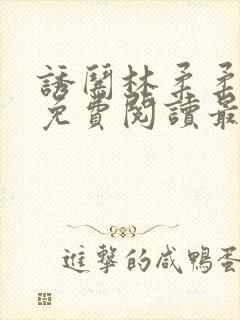 誘闖林柔柔
免費閱讀最
進擊的咸鴨蛋